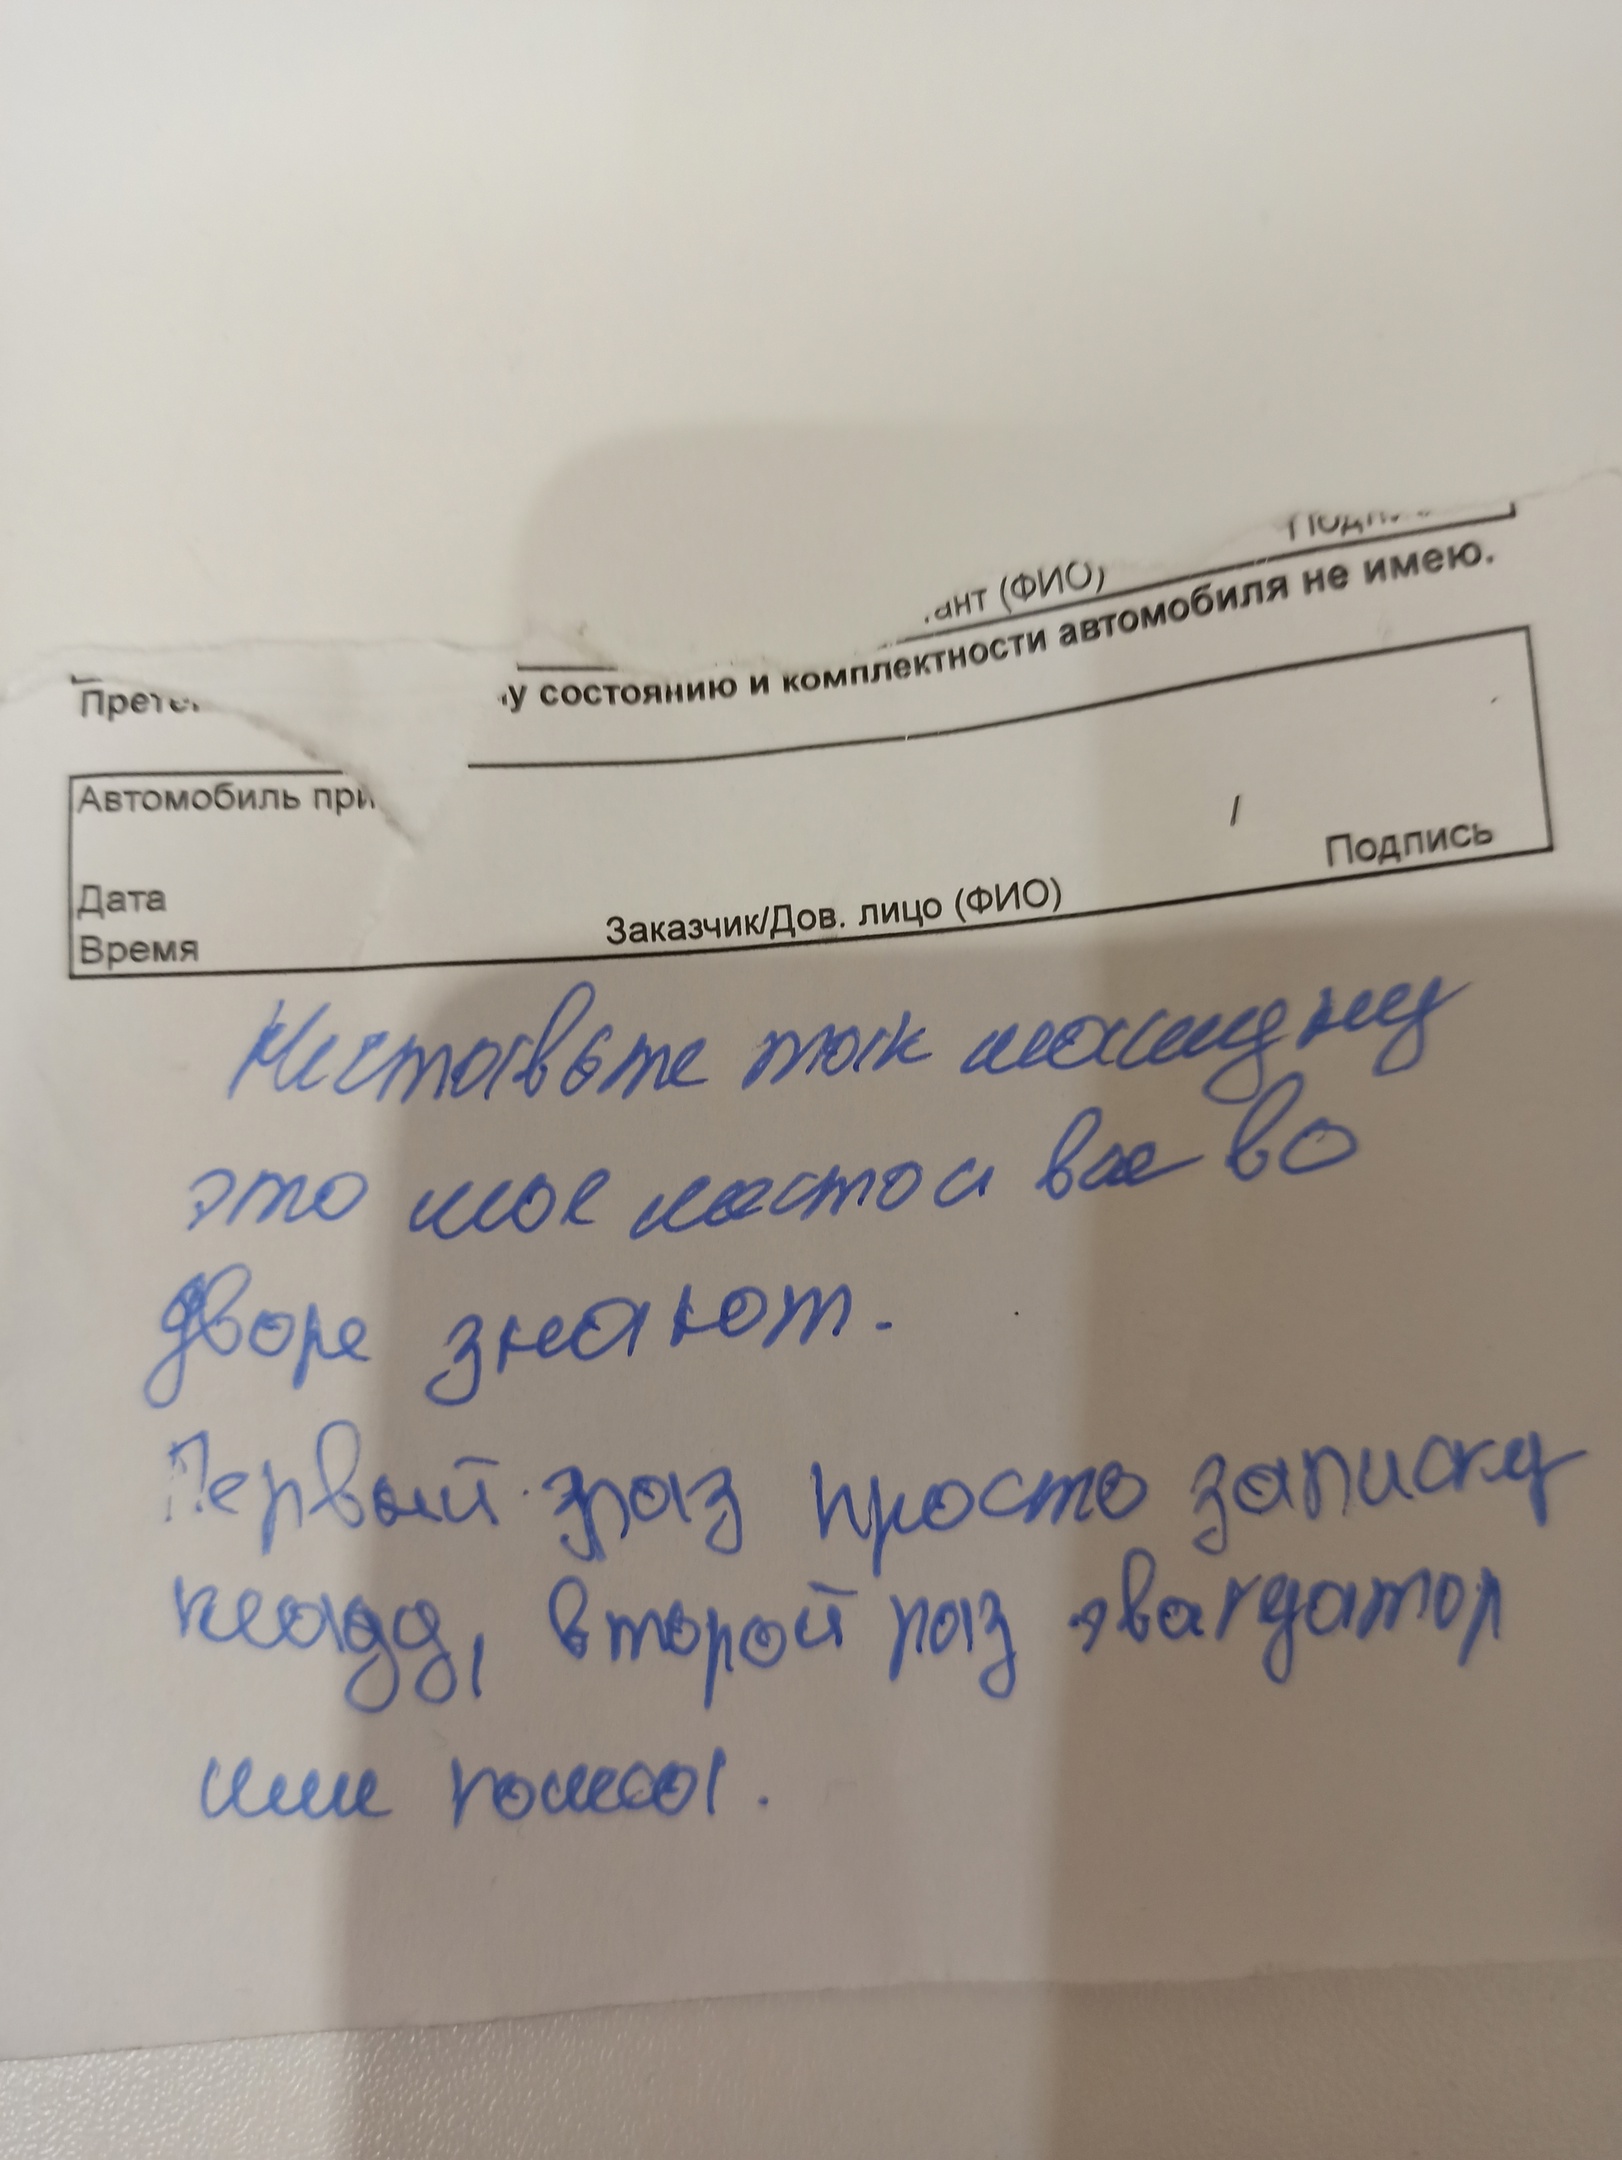 Подпис
ант (ФИО)
Прете у состоянию и комплектности автомобиля не имею.
Автомобиль при
/
Подпись
Дата
Заказчик/Дов. лицо (ФИО)
Время
Не ставьте так машину
это мое место и все во
дворе знают.
Первый раз просто записку
кладу, второй раз эвакуатор
или помы.